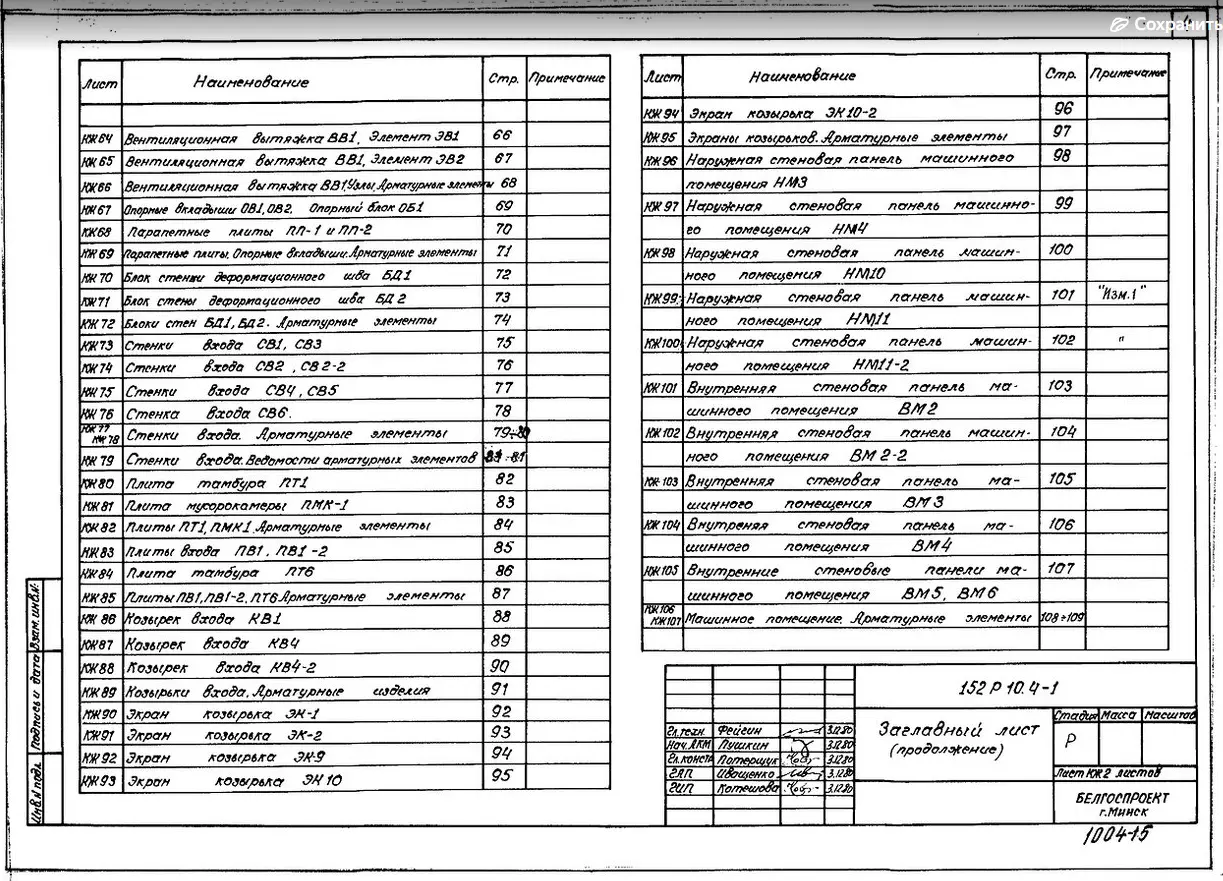 Сохранить
4
Лист Наименование Стр. Примечание
КЖ64 Вентиляционная вытяжка ВВ1, Элемент ЭВ1 66
КЖ65 Вентиляционная вытяжка ВВ1, Элемент ЭВ2 67
КЖ66 Вентиляционная вытяжка ВВ1.Узлы.Арматурные элементы 68
КЖ67 Опорные вкладыши ОВ1, ОВ2, Опорный блок ОБ1 69
КЖ68 Парапетные плиты ПП-1 и ПП-2 70
КЖ69 Парапетные плиты, Опорные вкладыши.Арматурные элементы 71
КЖ70 Блок стенки деформационного шва БД1 72
КЖ71 Блок стены деформационного шва БД2 73
КЖ72 Блоки стен БД1, БД2. Арматурные элементы 74
КЖ73 Стенки входа СВ1, СВ3 75
КЖ74 Стенки входа СВ2, СВ2-2 76
КЖ75 Стенки входа СВ4, СВ5 77
КЖ76 Стенка входа СВ6. 78
КЖ77 КЖ78 Стенки входа. Арматурные элементы 79÷80
КЖ79 Стенки входа.Ведомости арматурных элементов 81
КЖ80 Плита тамбура ПТ1 82
КЖ81 Плита мусорокамеры ПМК-1 83
КЖ82 Плиты ПТ1, ПМК1.Арматурные элементы 84
КЖ83 Плиты входа ПВ1, ПВ1-2 85
КЖ84 Плита тамбура ПТ6 86
КЖ85 Плиты ПВ1, ПВ1-2, ПТ6.Арматурные элементы 87
КЖ86 Козырек входа КВ1 88
КЖ87 Козырек входа КВ4 89
КЖ88 Козырек входа КВ4-2 90
КЖ89 Козырьки входа. Арматурные изделия 91
КЖ90 Экран козырька ЭК-1 92
КЖ91 Экран козырька ЭК-2 93
КЖ92 Экран козырька ЭК-9 94
КЖ93 Экран козырька ЭК10 95
Лист Наименование Стр. Примечание
КЖ94 Экран козырька ЭК10-2 96
КЖ95 Экраны козырьков.Арматурные элементы 97
КЖ96 Наружная стеновая панель машинного 98
помещения НМ3
КЖ97 Наружная стеновая панель машинно- 99
го помещения НМ4
КЖ98 Наружная стеновая панель машин- 100
ного помещения НМ10
КЖ99 Наружная стеновая панель машин- 101 "Изм.1"
ного помещения НМ11
КЖ100 Наружная стеновая панель машин- 102 "
ного помещения НМ11-2
КЖ101 Внутренняя стеновая панель ма- 103
шинного помещения ВМ2
КЖ102 Внутренняя стеновая панель машин- 104
ного помещения ВМ2-2
КЖ103 Внутренняя стеновая панель ма- 105
шинного помещения ВМ3
КЖ104 Внутреняя стеновая панель ма- 106
шинного помещения ВМ4
КЖ105 Внутренние стеновые панели ма- 107
шинного помещения ВМ5, ВМ6
КЖ106 КЖ107 Машинное помещение. Арматурные элементы 108÷109
152 Р 10.4-1
Заглавный лист
(продолжение)
Стадия Масса Масштаб
Р
Лист КЖ2 листов
БЕЛГОСПРОЕКТ
г.Минск
Гл.техн. Фейгин 3.12.80
Нач.АКМ Пушкин 3.12.80
Гл.констр Потерщук 3.12.80
ГАП Иващенко 3.12.80
ГИП Котешова 3.12.80
1004-15
Взам.инв.№
Подпись и дата
Инв.№ подл.